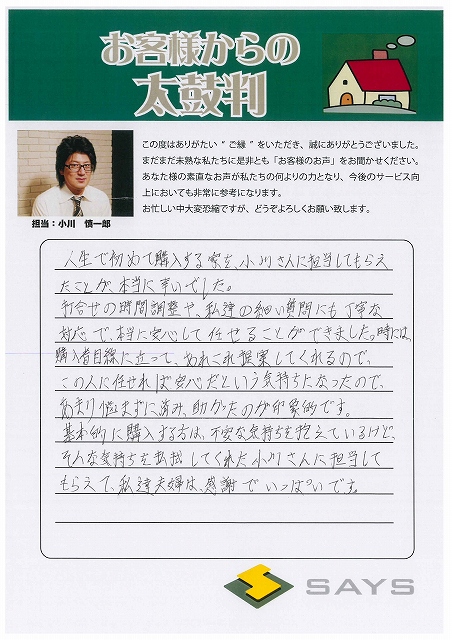 お客様からの
太鼓判
この度はありがたい“ご縁”をいただき、誠にありがとうございました。
まだまだ未熟な私たちに是非とも「お客様のお声」をお聞かせください。
あなた様の素直なお声が私たちの何よりの力となり、今後のサービス向
上においても非常に参考になります。
お忙しい中大変恐縮ですが、どうぞよろしくお願い致します。
担当：小川 慎一郎
人生で初めて購入する家を、小川さんに担当してもらえ
たことが、本当に幸いでした。
打合せの時間調整や、私達の細い質問にも丁寧な
対応で、本当に安心して任せることができました。時には、
購入者目線に立って、あれこれ提案してくれるので、
この人に任せれば安心だという気持ちになったので、
あまり悩まずに済み、助かったのが印象的です。
基本的に購入する方は、不安な気持ちを抱えているけど、
そんな気持ちを払拭してくれた小川さんに担当して
もらえて、私達夫婦は、感謝でいっぱいです。
SAYS